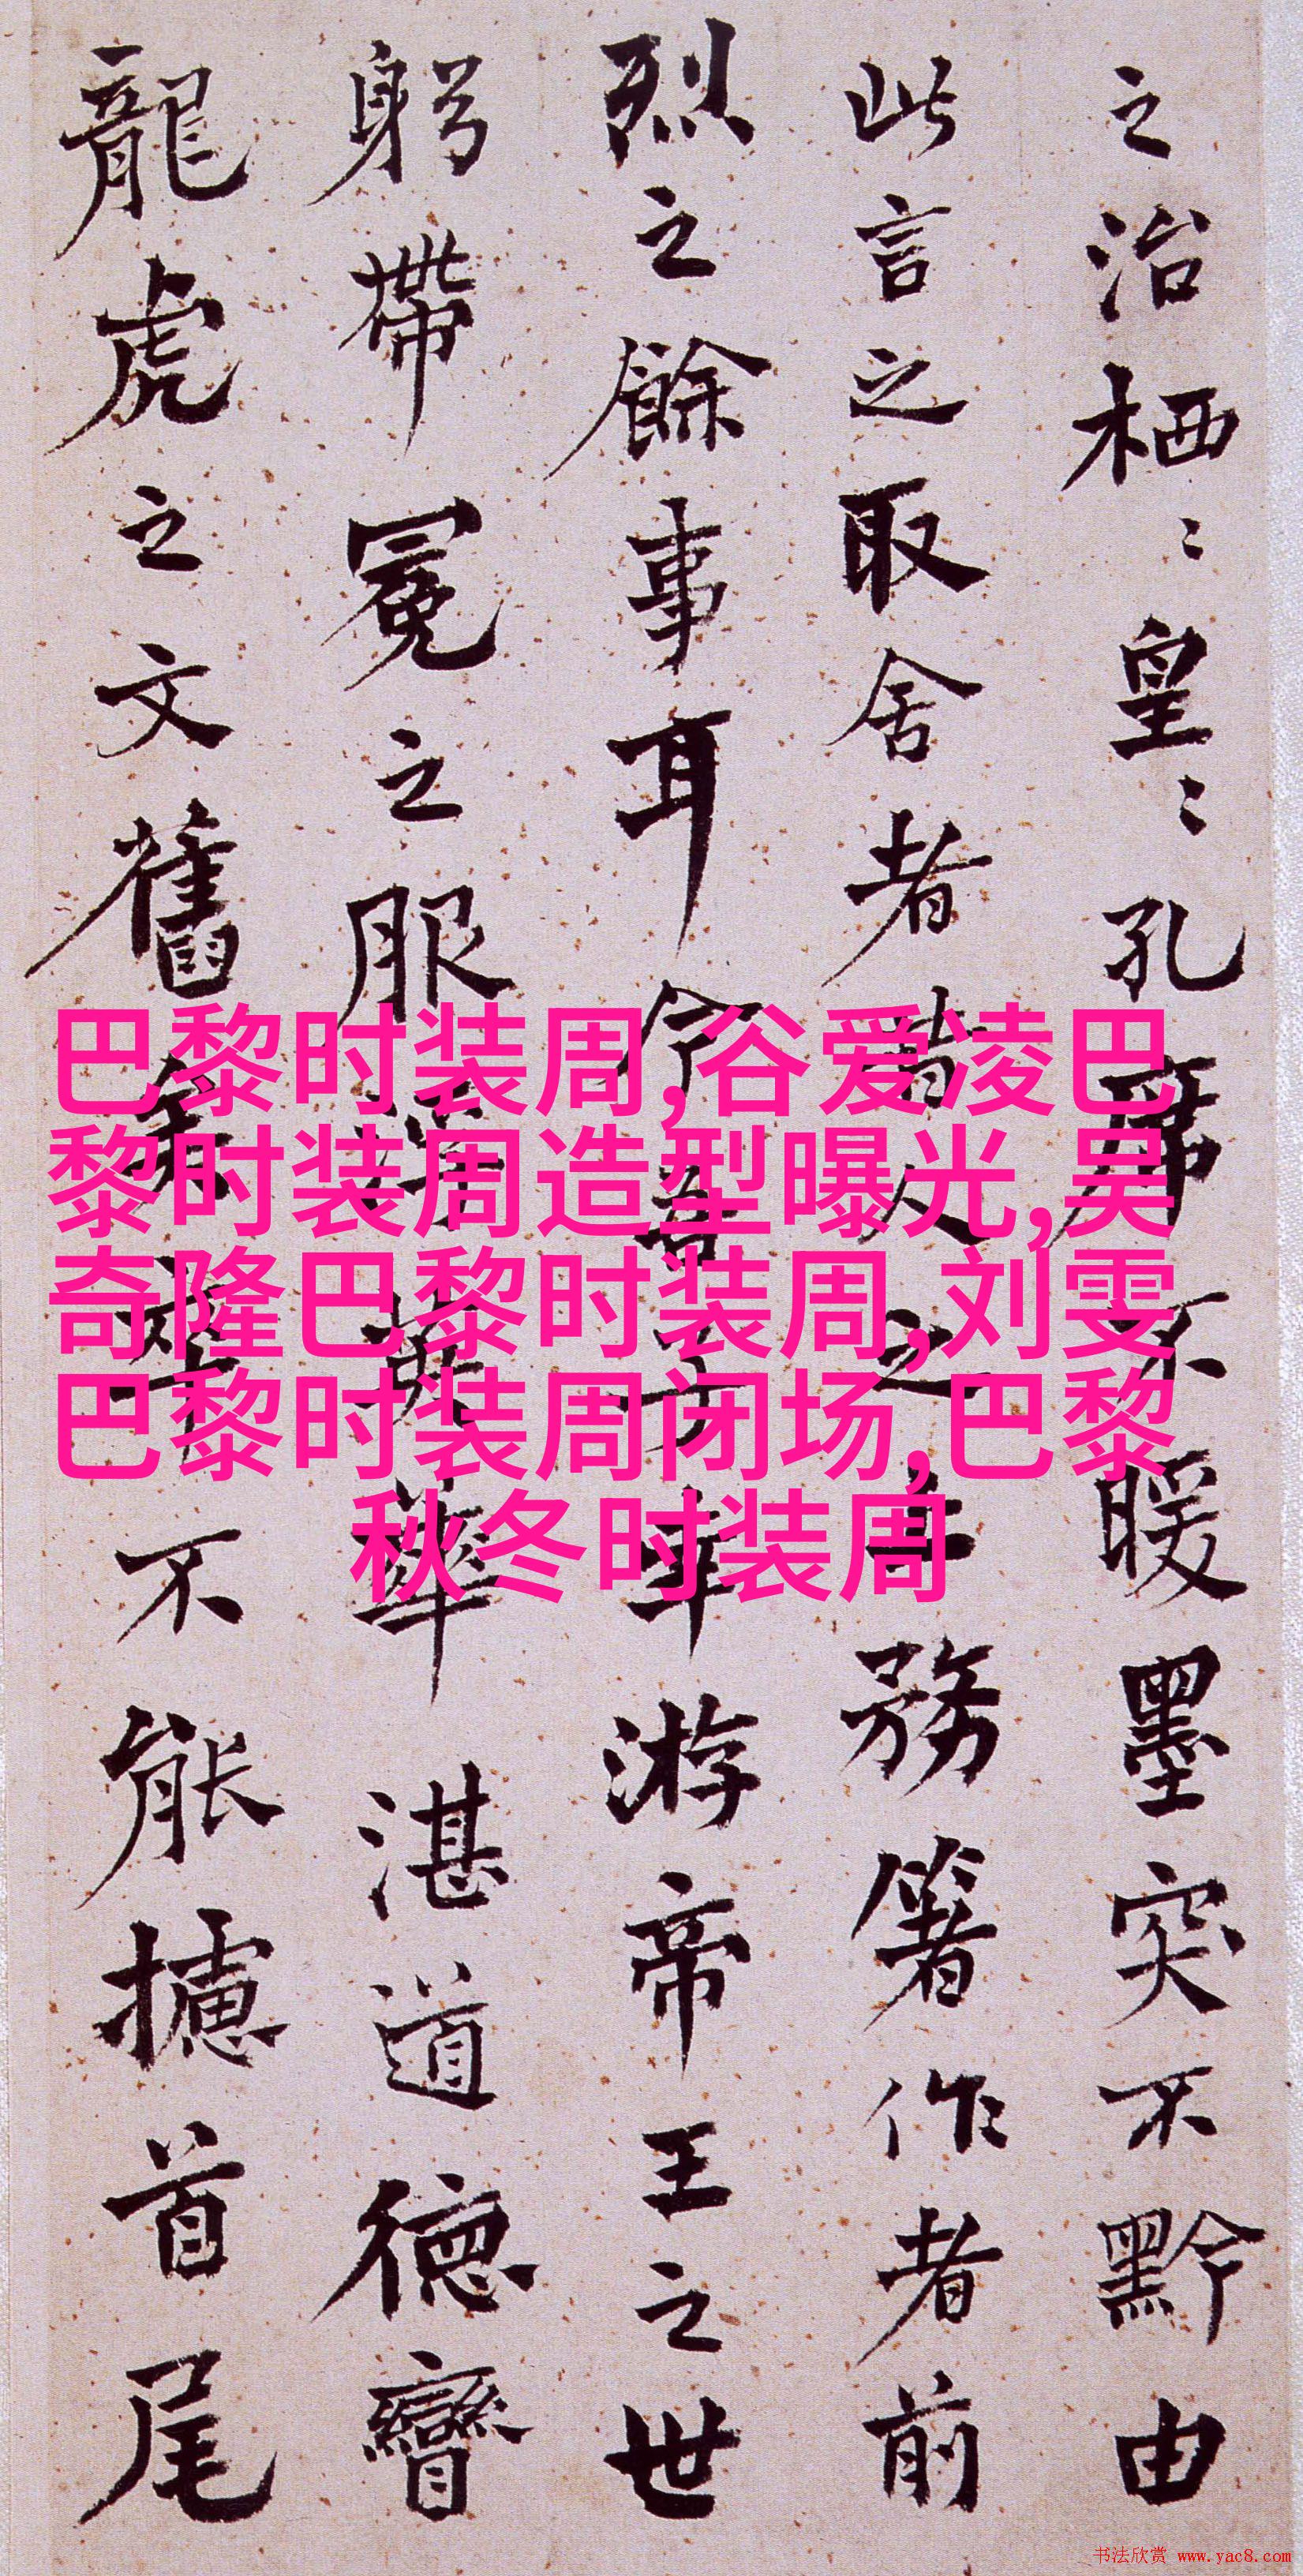 之治栖〻皇〻孔席不暖墨突不黔由
此言之取舍者昔人之上務箸作者前
烈之餘事耳今吾子幸游帝王之世
躬帶冕之服浮英華湛道德矕
龍虎之文舊矣卒不能攄首尾
巴黎时装周,谷爱凌巴
黎时装周造型曝光,吴
奇隆巴黎时装周,刘雯
巴黎时装周闭场,巴黎
秋冬时装周
书法欣赏 www.yac8.com